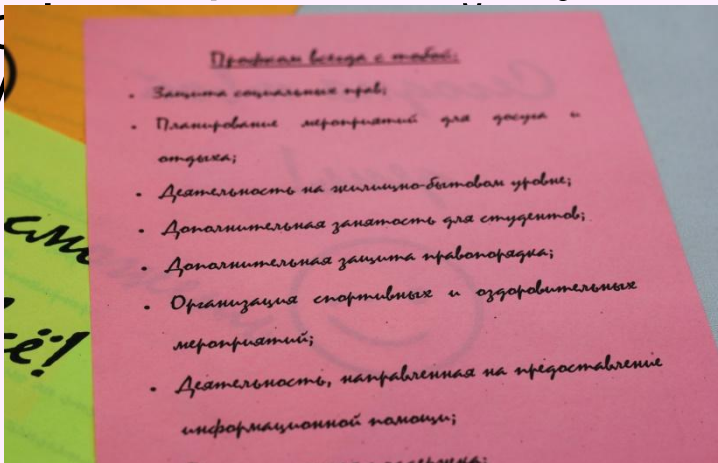 Профком всегда с тобой:
• Защита социальных прав;
• Планирование мероприятий для досуга и
отдыха;
• Деятельность на жилищно-бытовом уровне;
• Дополнительная занятость для студентов;
• Дополнительная защита правопорядка;
• Организация спортивных и оздоровительных
мероприятий;
• Деятельность, направленная на предоставление
информационной помощи;
всё!